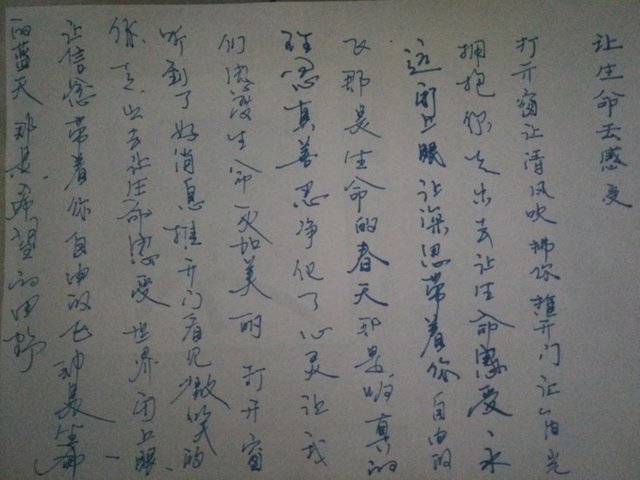 让生命去感受
打开窗让清风吹拂你推开门让阳光
拥抱你走出去让生命感受、永
远闭上眼让深思带着你自由的
飞那是生命的春天那是真的
理念真善忍净化了心灵让我
们感受生命更加美丽打开窗
听到了好消息推开门看见微笑的
你走出去让生命感受世界闭上眼、
让信念带着你自由的飞那是生命
的蓝天那是希望的田野